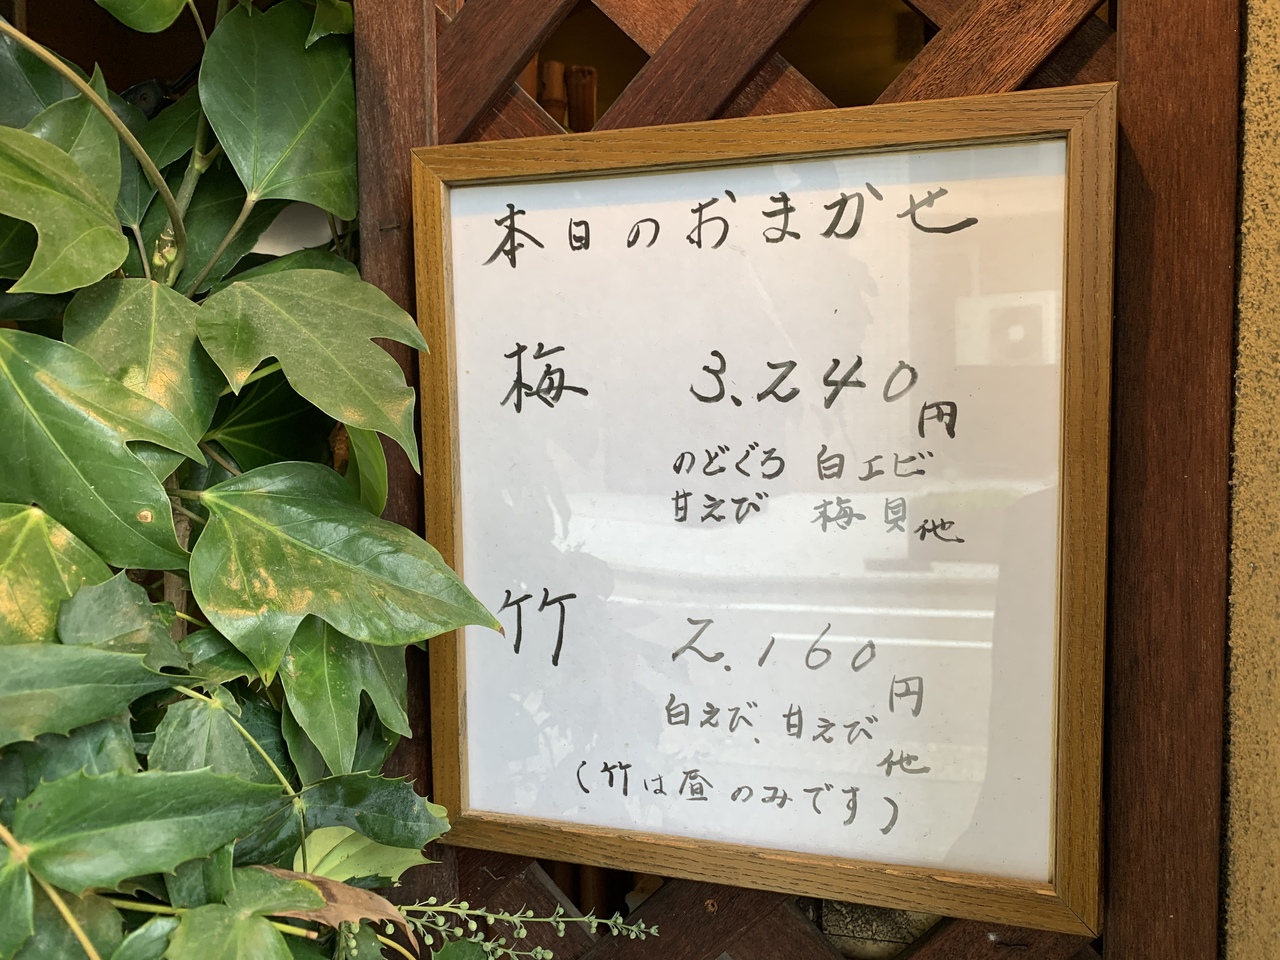 本日のおまかせ
梅 3,240円
のどぐろ 白エビ
甘えび 梅貝他
竹 2,160円
白えび、甘えび他
(竹は昼のみです)